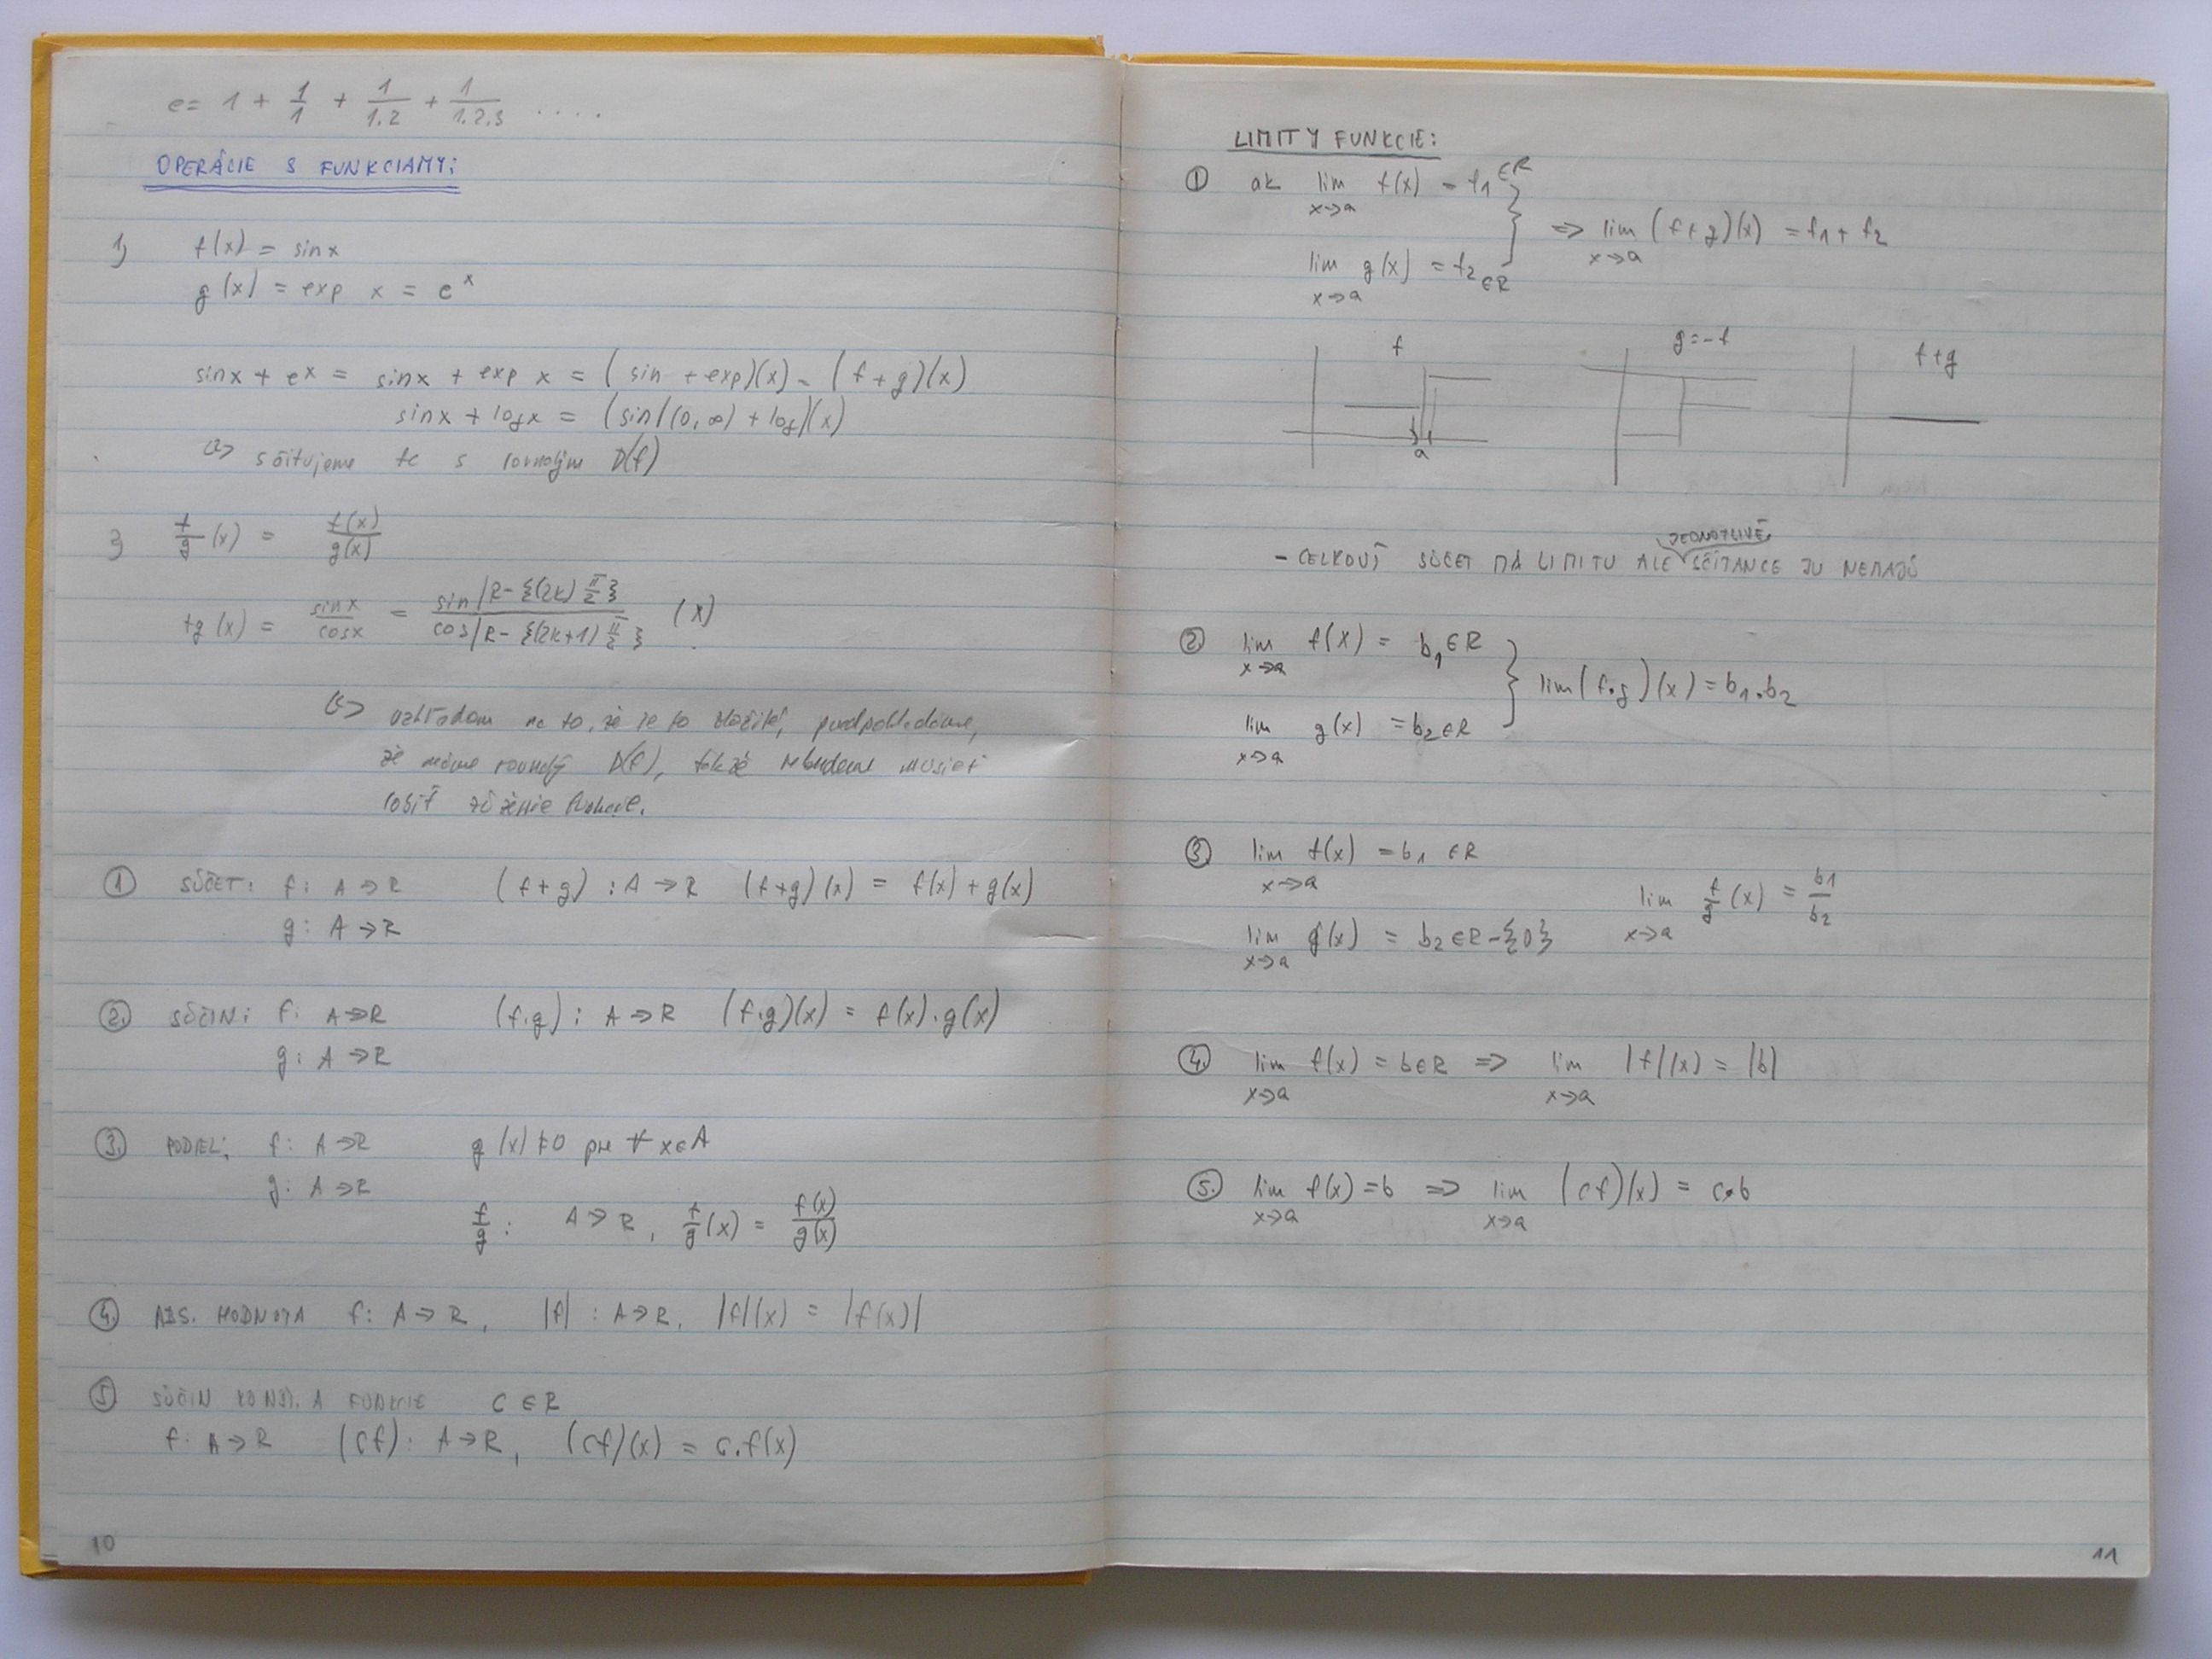 e = 1 + 1/1 + 1/1.2 + 1/1.2.3 ....
OPERÁCIE S FUNKCIAMY:
1) f(x) = sinx
g(x) = exp x = e^x
sinx + e^x = sinx + exp x = (sin + exp)(x) = (f+g)(x)
sinx + logx = (sin|(0,∞) + log)(x)
=> sčitujeme fc s rovnakým D(f)
3) f/g (x) = f(x)/g(x)
tg(x) = sinx/cosx = sin|R-{(2k) π/2} / cos|R-{(2k+1) π/2} (x)
=> vzhľadom na to, že je to zložité, predpokladáme,
že máme rovnaký D(f), takže nebudeme musieť
robiť zúženie funkcie.
① SÚČET: f: A → R (f+g) : A → R (f+g)(x) = f(x) + g(x)
g: A → R
②. SÚČIN: f: A → R (f.g) : A → R (f.g)(x) = f(x).g(x)
g: A → R
③. PODIEL: f: A → R g(x) ≠ 0 pre ∀ x∈A
g: A → R
f/g : A → R, f/g (x) = f(x)/g(x)
④. ABS. HODNOTA f: A → R, |f| : A → R, |f|(x) = |f(x)|
⑤ SÚČIN KONŠT. A FUNKCIE C ∈ R
f: A → R (cf): A → R, (cf)(x) = c.f(x)
10
LIMITY FUNKCIE:
① ak lim x→a f(x) = f1 ∈R } => lim x→a (f+g)(x) = f1 + f2
lim x→a g(x) = f2 ∈R
f g=-f f+g
a
- CELKOVÝ SÚČET MÁ LIMITU ALE JEDNOTLIVÉ SČÍTANCE JU NEMAJÚ
②. lim x→a f(x) = b1 ∈ R } lim (f.g)(x) = b1.b2
lim x→a g(x) = b2 ∈ R
③ lim x→a f(x) = b1 ∈R lim x→a f/g (x) = b1/b2
lim x→a g(x) = b2 ∈ R-{0}
④. lim x→a f(x) = b∈R => lim x→a |f|(x) = |b|
⑤. lim x→a f(x) = b => lim x→a (cf)(x) = c.b
11